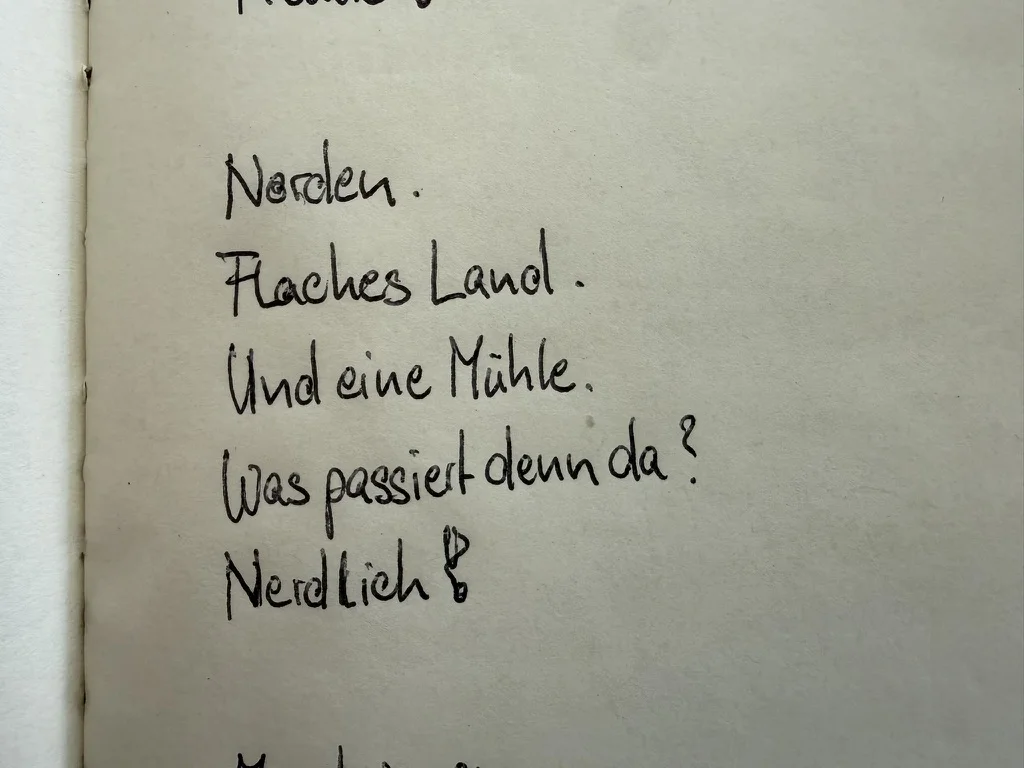 Norden.
Flaches Land.
Und eine Mühle.
Was passiert denn da?
Nerdlich!